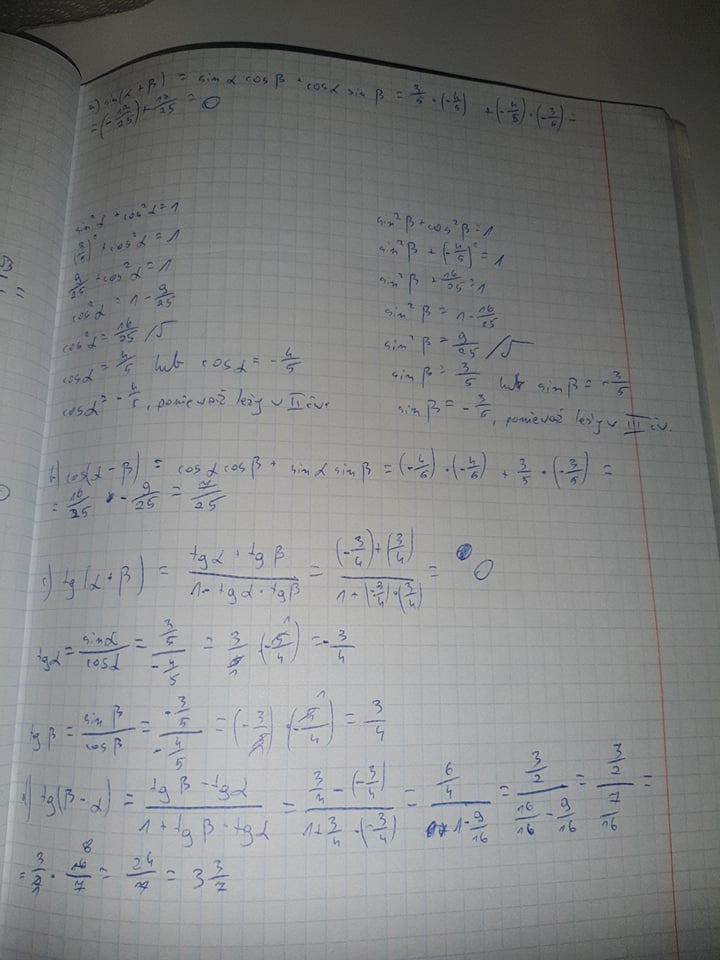 a) sin(α+β) = sin α cos β + cos α sin β = 3/5 · (-4/5) + (-4/5) · (-3/5) =
= (-12/25) + 12/25 = 0
sin²α + cos²α = 1
(3/5)² + cos²α = 1
9/25 + cos²α = 1
cos²α = 1 - 9/25
cos²α = 16/25 /√
cos α = 4/5 lub cos α = -4/5
cos α = -4/5, ponieważ leży w II ćw.
sin²β + cos²β = 1
sin²β + (-4/5)² = 1
sin²β + 16/25 = 1
sin²β = 1 - 16/25
sin²β = 9/25 /√
sin β = 3/5 lub sin β = -3/5
sin β = -3/5, ponieważ leży w III ćw.
b) cos(α-β) = cos α cos β + sin α sin β = (-4/5) · (-4/5) + 3/5 · (-3/5) =
= 16/25 - 9/25 = 7/25
c) tg(α+β) = (tg α + tg β)/(1 - tg α · tg β) = ((-3/4) + (3/4))/(1 + (-3/4) · (3/4)) = 0
tg α = sin α/cos α = (3/5)/(-4/5) = 3/5 · (-5/4) = -3/4
tg β = sin β/cos β = (-3/5)/(-4/5) = (-3/5) · (-5/4) = 3/4
d) tg(β-α) = (tg β - tg α)/(1 + tg β · tg α) = (3/4 - (-3/4))/(1 + 3/4 · (-3/4)) = (6/4)/(1 - 9/16) = (3/2)/(16/16 - 9/16) = (3/2)/(7/16) =
= 3/2 · 16/7 = 24/7 = 3 3/7